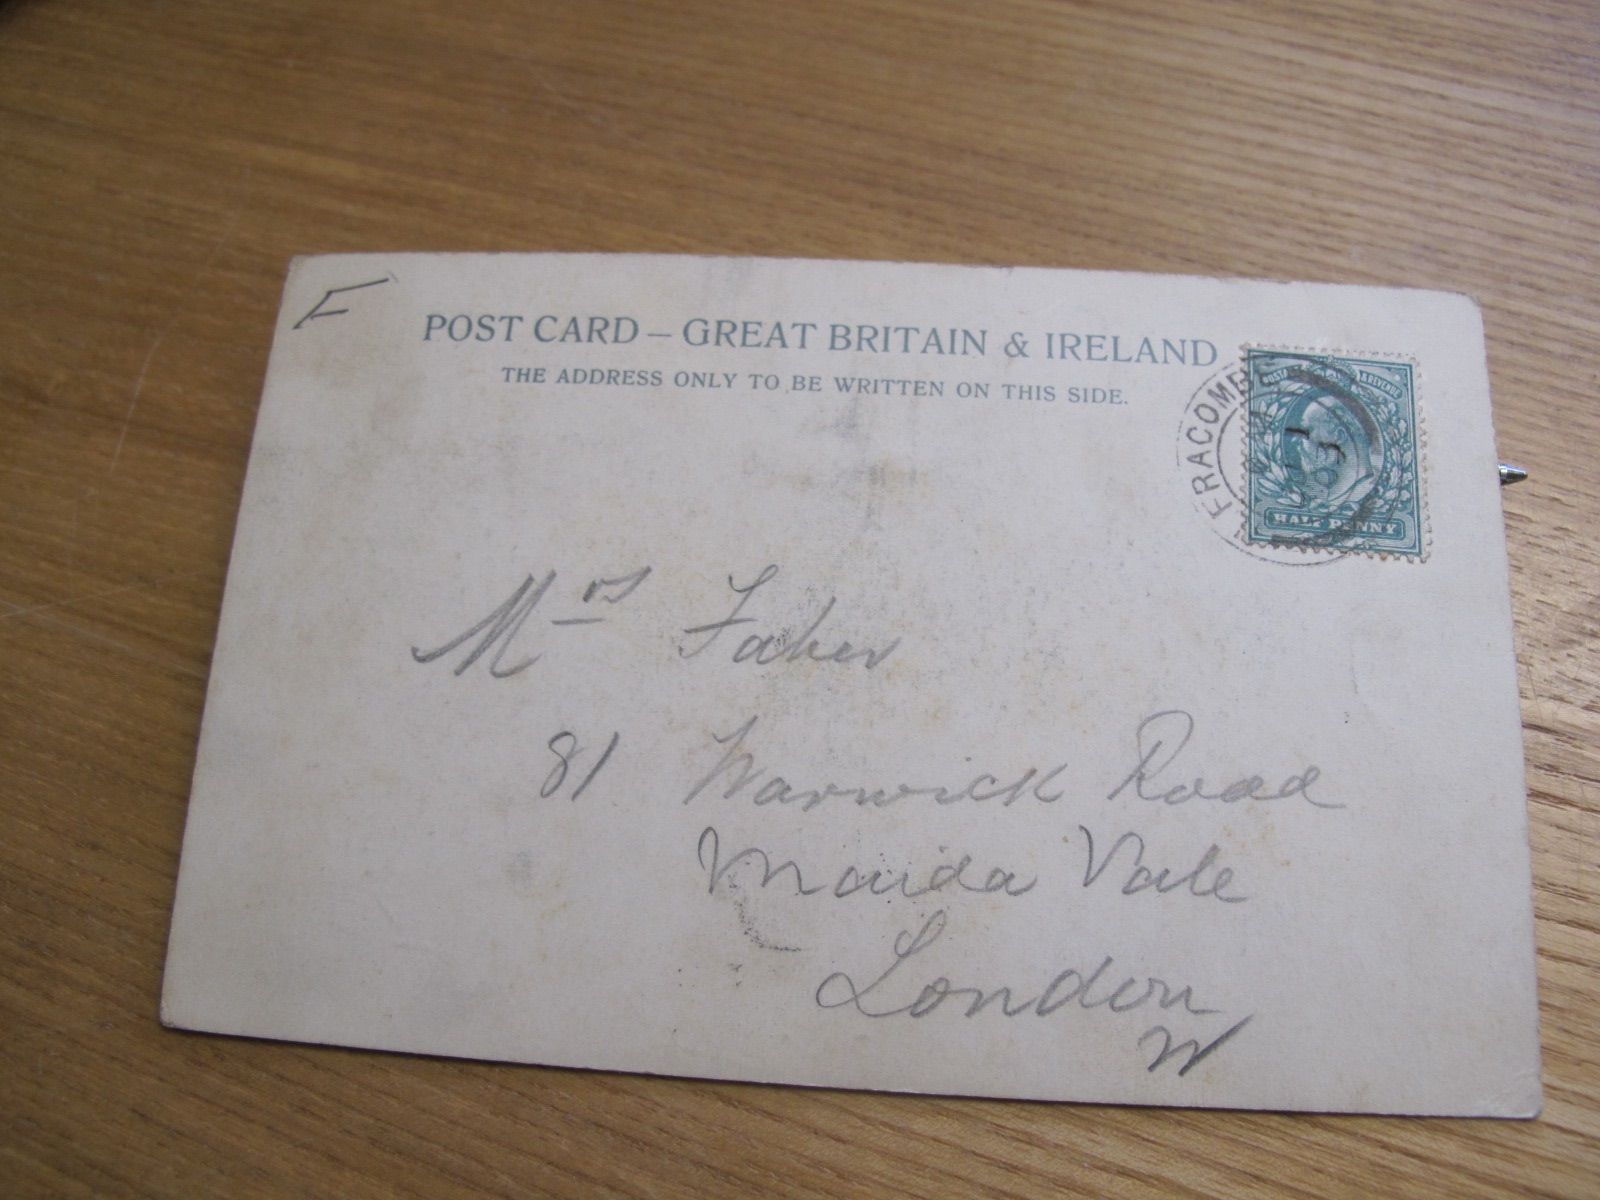 F
POST CARD – GREAT BRITAIN & IRELAND
THE ADDRESS ONLY TO BE WRITTEN ON THIS SIDE.
POSTAGE & REVENUE
HALF PENNY
ILFRACOMBE
03
Mrs Faber
81 Warwick Road
Maida Vale
London
W